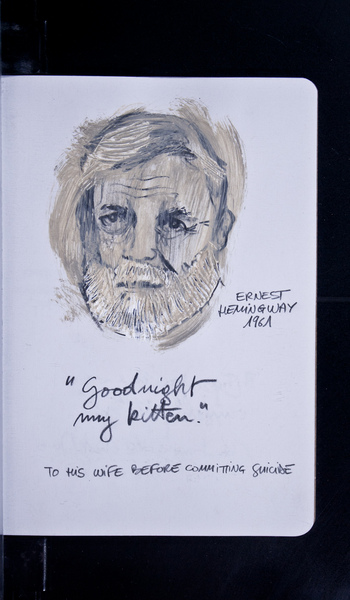 ERNEST
HEMINGWAY
1961
"Goodnight
my kitten."
TO HIS WIFE BEFORE COMMITTING SUICIDE